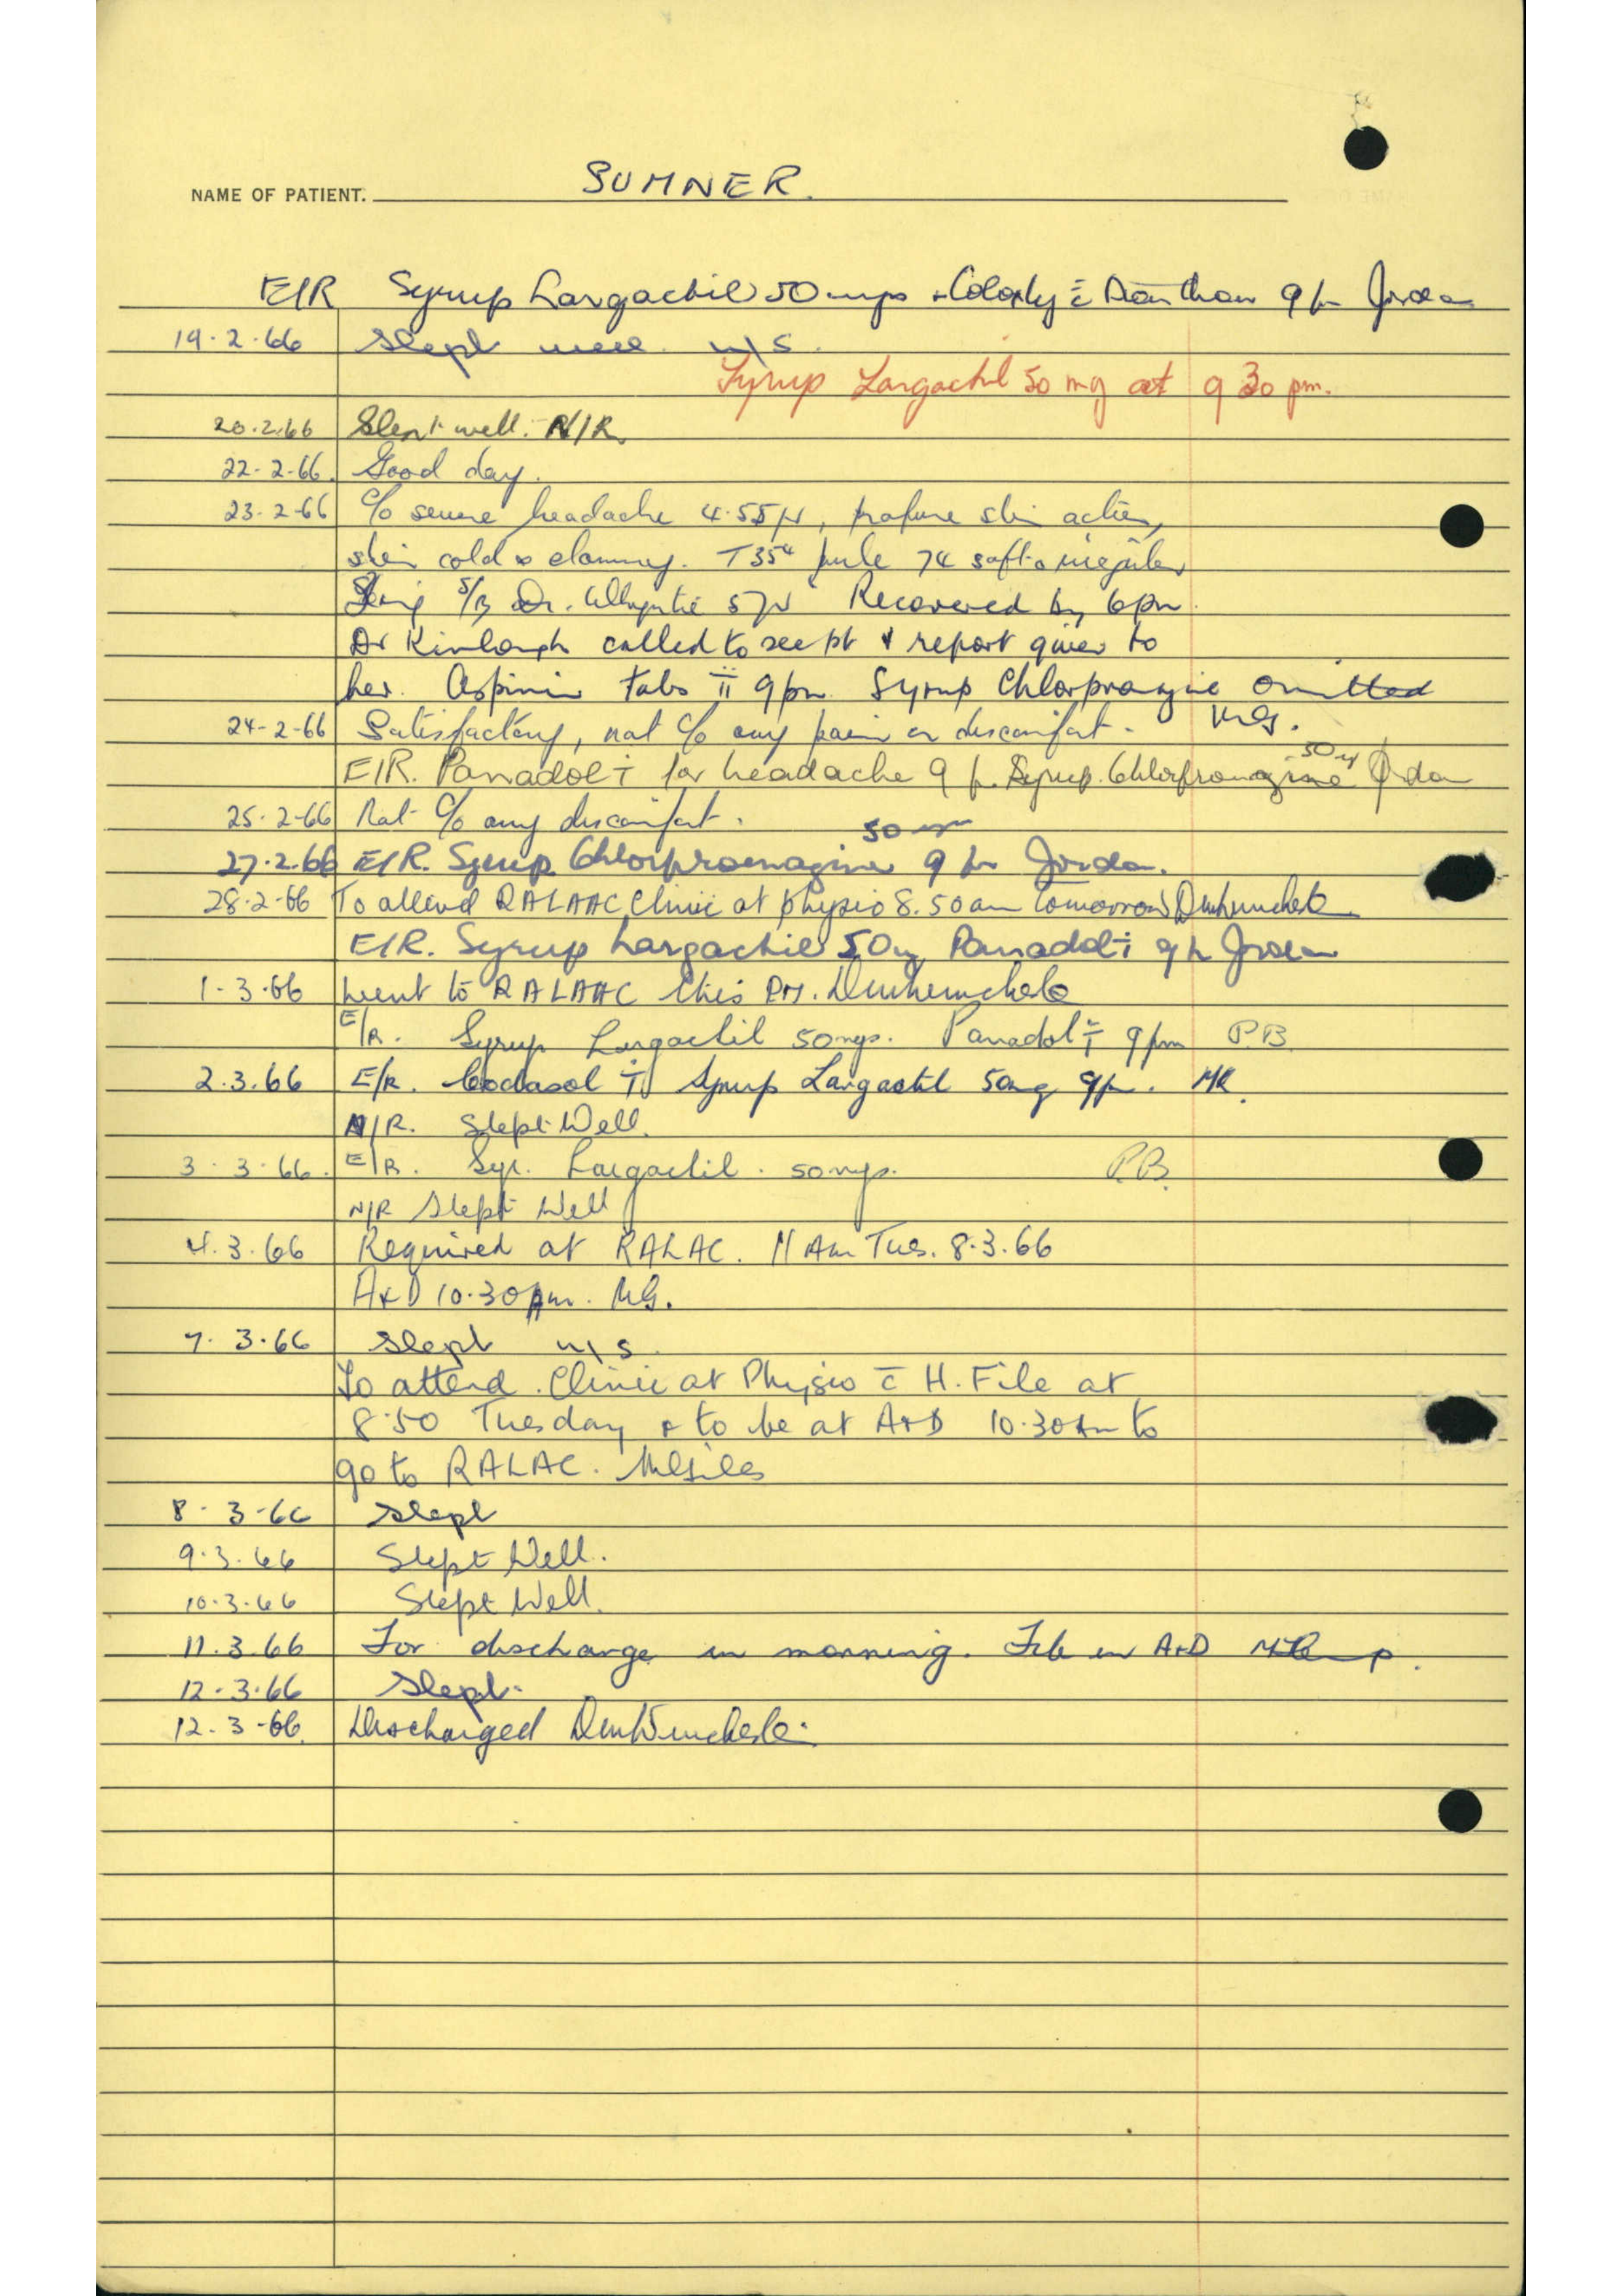 NAME OF PATIENT. SUMNER.
E/R Syrup Largactil 50 mgs + Coloxyl c̄ Danthron 9 pm Jordan
19.2.66 Slept well. N/S.
Syrup Largactil 50 mg at 9 30 pm.
20.2.66 Slept well. N/R.
22-2-66. Good day.
23-2-66 C/o severe headache 4.55pm, profuse skin action,
skin cold & clammy. T35⁴ pulse 74 soft & irregular
S/B Dr. 5pm Recovered by 6pm.
Dr called to see pt & report given to
her. Aspirin tabs ii 9pm Syrup Chlorpromazine omitted
24-2-66 Satisfactory, not c/o any pain or discomfort. MG.
E/R. Panadol ii for headache 9 p. Syrup Chlorpromazine 50 mg Jordan
25.2.66 Not c/o any discomfort.
27.2.66 E/R. Syrup Chlorpromazine 50 mgm 9 pm Jordan.
28.2.66 To attend RALAAC Clinic at physio 8.50am tomorrow
E/R. Syrup Largactil 50mg Panadol ii 9 p Jordan
1.3.66 Went to RALAAC this PM.
E/R. Syrup Largactil 50mgs. Panadol ii 9pm P.B.
2.3.66 E/R. Codasol ii Syrup Largactil 50mg 9p. MR.
N/R. Slept Well.
3.3.66. E/R. Syr. Largactil. 50mgs. P.B.
N/R Slept Well
4.3.66 Required at RALAC. 11 Am Tues. 8.3.66
A&D 10.30 am. MG.
7.3.66 Slept N/S.
To attend Clinic at Physio c̄ H. File at
8.50 Tuesday & to be at A&D 10.30 Am to
go to RALAC.
8-3-66 Slept
9.3.66 Slept Well.
10.3.66 Slept Well.
11.3.66 For discharge in morning. File in A&D
12.3.66 Slept.
12.3-66. Discharged